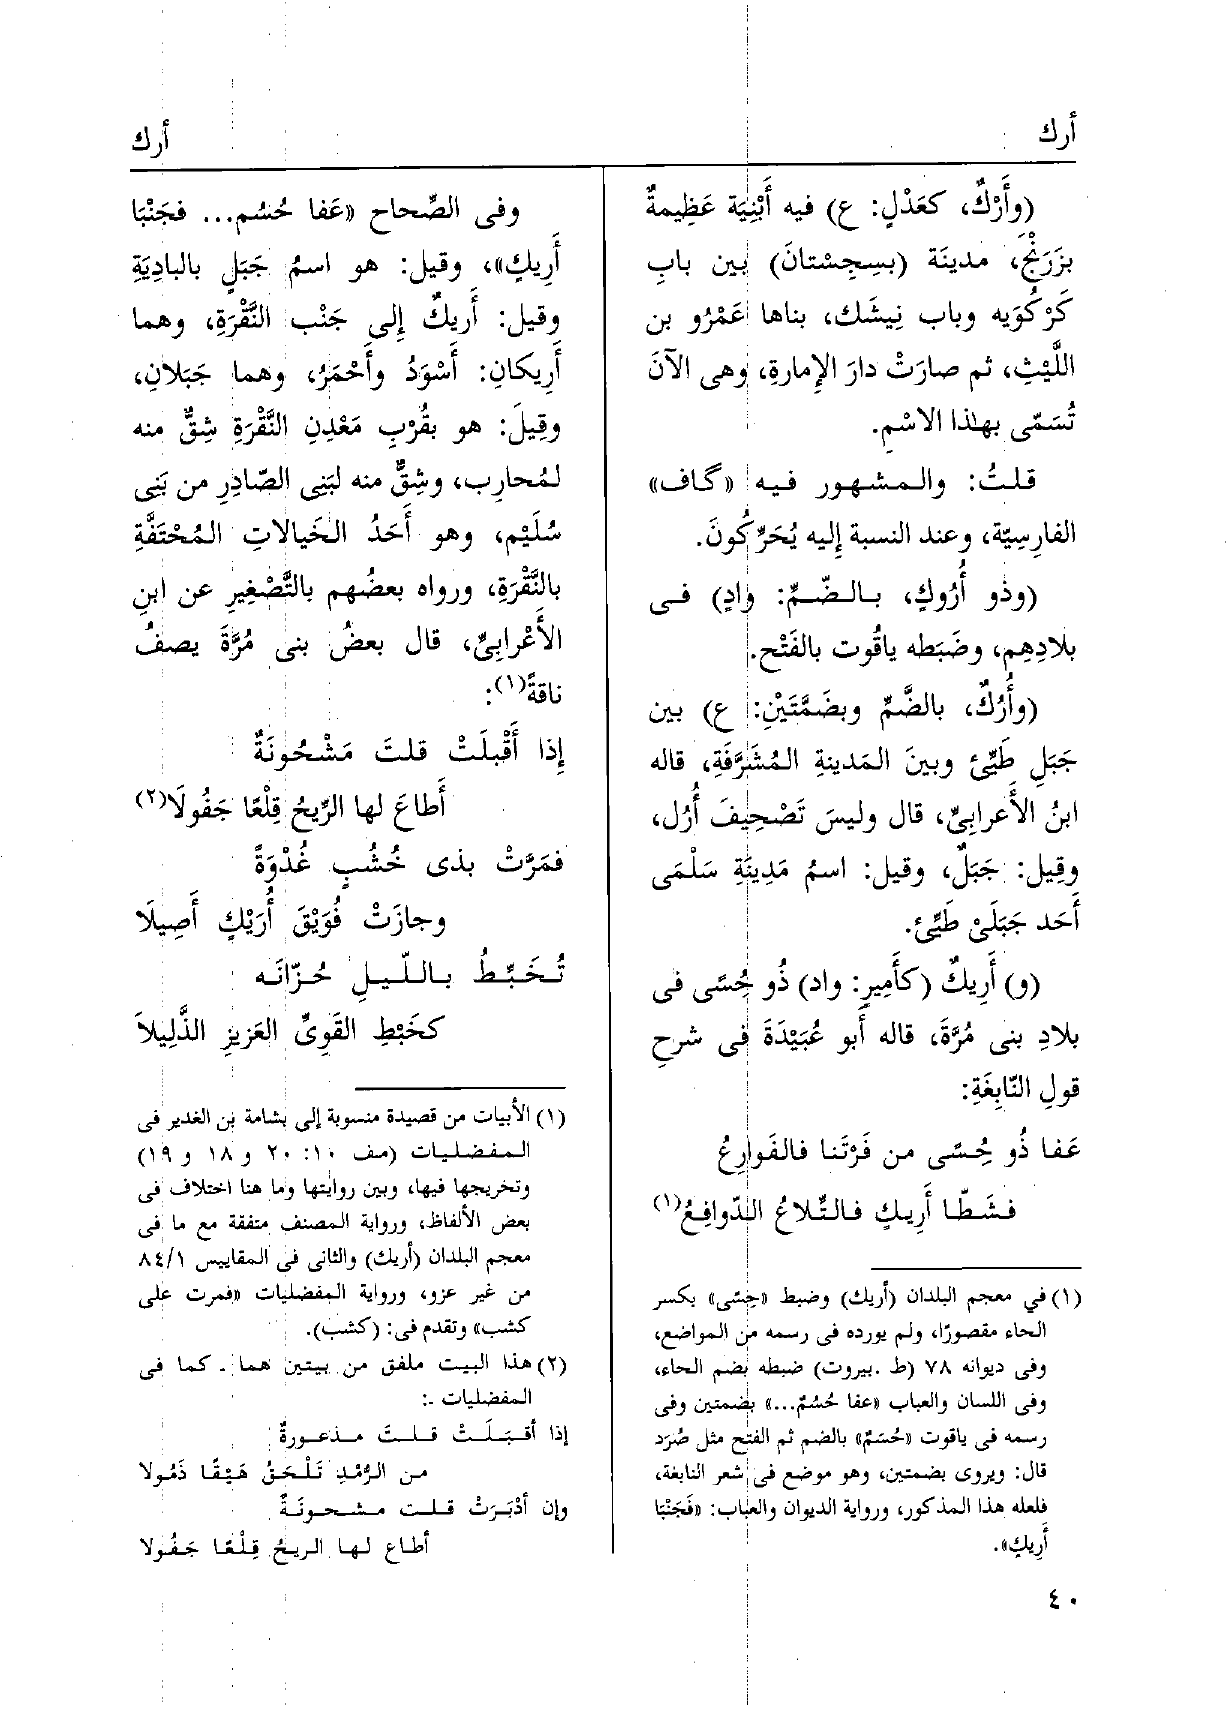 أرك
أرك
(وأَرْكٌ، كعَدْلٍ: ع) فيه أَبْنِيَة عَظِيمةٌ
بزَرَنْجَ، مدينَة (بسِجِسْتانَ) بين بابِ
كَرْكُوَيه وباب نِيشَك، بناها عَمْرُو بن
اللَّيْثِ، ثم صارَتْ دارَ الإمارةِ، وهى الآنَ
تُسَمّى بهٰذا الاسْمِ.
قلتُ: والمشهور فيه «گاف»
الفارِسِيّة، وعند النسبة إليه يُحَرِّكُونَ.
(وذو أُرُوكٍ، بالضّمِّ: وادٍ) فى
بلادِهِم، وضَبَطه ياقُوت بالفَتْح.
(وأُرُكٌ، بالضَّمِّ وبضَمَّتَيْنِ: ع) بين
جَبَلِ طَيِّئ وبينَ المَدينةِ المُشَرَّفَةِ، قاله
ابنُ الأَعرابِىِّ، قال وليسَ تَصْحِيفَ أُرُل،
وقِيل: جَبَلٌ، وقيل: اسمُ مَدِينَةِ سَلْمَى
أَحَد جَبَلَىْ طَيِّئ.
(و) أَرِيكٌ (كأَمِيرٍ: واد) ذُو حُِسًى فى
بلادِ بنى مُرَّةَ، قاله أبو عُبَيْدَةَ فى شرحِ
قولِ النّابِغَةِ:
عَفا ذُو حُِسًى من فَرْتَنا فالفَوارِعُ
فشَطّا أَرِيكٍ فالتِّلاعُ الدّوافِعُ(١)
(١) في معجم البلدان (أريك) وضبط «حِسًى» بكسر
الحاء مقصورًا، ولم يورده فى رسمه من المواضع،
وفى ديوانه ٧٨ (ط .بيروت) ضبطه بضم الحاء،
وفى اللسان والعباب «عفا حُسُمٌ...» بضمتين وفى
رسمه فى ياقوت «حُسَمٌ» بالضم ثم الفتح مثل صُرَد
قال: ويروى بضمتين، وهو موضع فى شعر النابغة،
فلعله هذا المذكور، ورواية الديوان والعباب: «فَجَنْبَا
أَرِيكٍ».
وفى الصِّحاح «عَفا حُسُم... فجَنْبَا
أَرِيكٍ»، وقيل: هو اسمُ جَبَلٍ بالبادِيَةِ
وقيل: أَرِيكٌ إلى جَنْب النَّقْرَةِ، وهما
أَرِيكانِ: أَسْوَدُ وأَحْمَرُ، وهما جَبَلان،
وقِيلَ: هو بقُرْبِ مَعْدِنِ النَّقْرَةِ شِقٌّ منه
لمُحارِب، وشِقٌّ منه لبَنِى الصّادِرِ من بَنِى
سُلَيْم، وهو أَحَدُ الخَيالاتِ المُحْتَفَّةِ
بالنَّقْرَةِ، ورواه بعضُهم بالتَّصْغِيرِ عن ابنِ
الأَعْرابِىِّ، قال بعضُ بنى مُرَّةَ يصفُ
ناقةً(١):
إذا أَقْبَلَتْ قلتَ مَشْحُونَةٌ
أَطاعَ لها الرِّيحُ قِلْعًا جَفُولَا(٢)
فمَرَّتْ بذى خُشُبٍ غُدْوَةً
وجازَتْ فُوَيْقَ أُرَيْكٍ أَصِيلَا
تُخَبِّطُ باللّيلِ حُزّانَه
كخَبْطِ القَوِىِّ العَزِيزِ الذَّلِيلاَ
(١) الأبيات من قصيدة منسوبة إلى بشامة بن الغدير فى
المفضليات (مف ١٠: ٢٠ و ١٨ و ١٩)
وتخريجها فيها، وبين روايتها وما هنا اختلاف فى
بعض الألفاظ، ورواية المصنف متفقة مع ما فى
معجم البلدان (أريك) والثانى فى المقاييس ٨٤/١
من غير عزو، ورواية المفضليات «فمرت على
كشب» وتقدم فى: (كشب).
(٢) هذا البيت ملفق من بيتين هما - كما فى
المفضليات -:
إذا أقبَلَتْ قلتَ مذعورةٌ
من الرُّمْدِ تَلْحَقُ هَيْقًا ذَمُولا
وإن أدْبَرَتْ قلت مشحونَةٌ
أطاع لها الريحُ قِلْعًا جَفُولا
٤٠